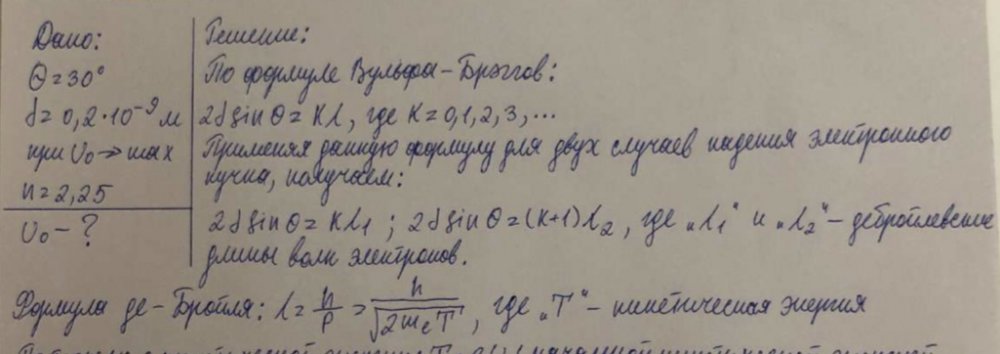 Дано:
θ=30°
d=0,2·10⁻⁹м
при U₀→max
n=2,25
U₀-?
Решение:
По формуле Вульфа-Брэггов:
2d sin θ=Kλ, где K=0,1,2,3,...
Применяя данную формулу для двух случаев падения электронного
пучка, получаем:
2d sin θ=Kλ₁ ; 2d sin θ=(K+1)λ₂, где „λ₁“ и „λ₂“-дебройлевские
длины волн электронов.
Формула де-Бройля: λ=h/p=h/√2mₑT, где „T“-кинетическая энергия